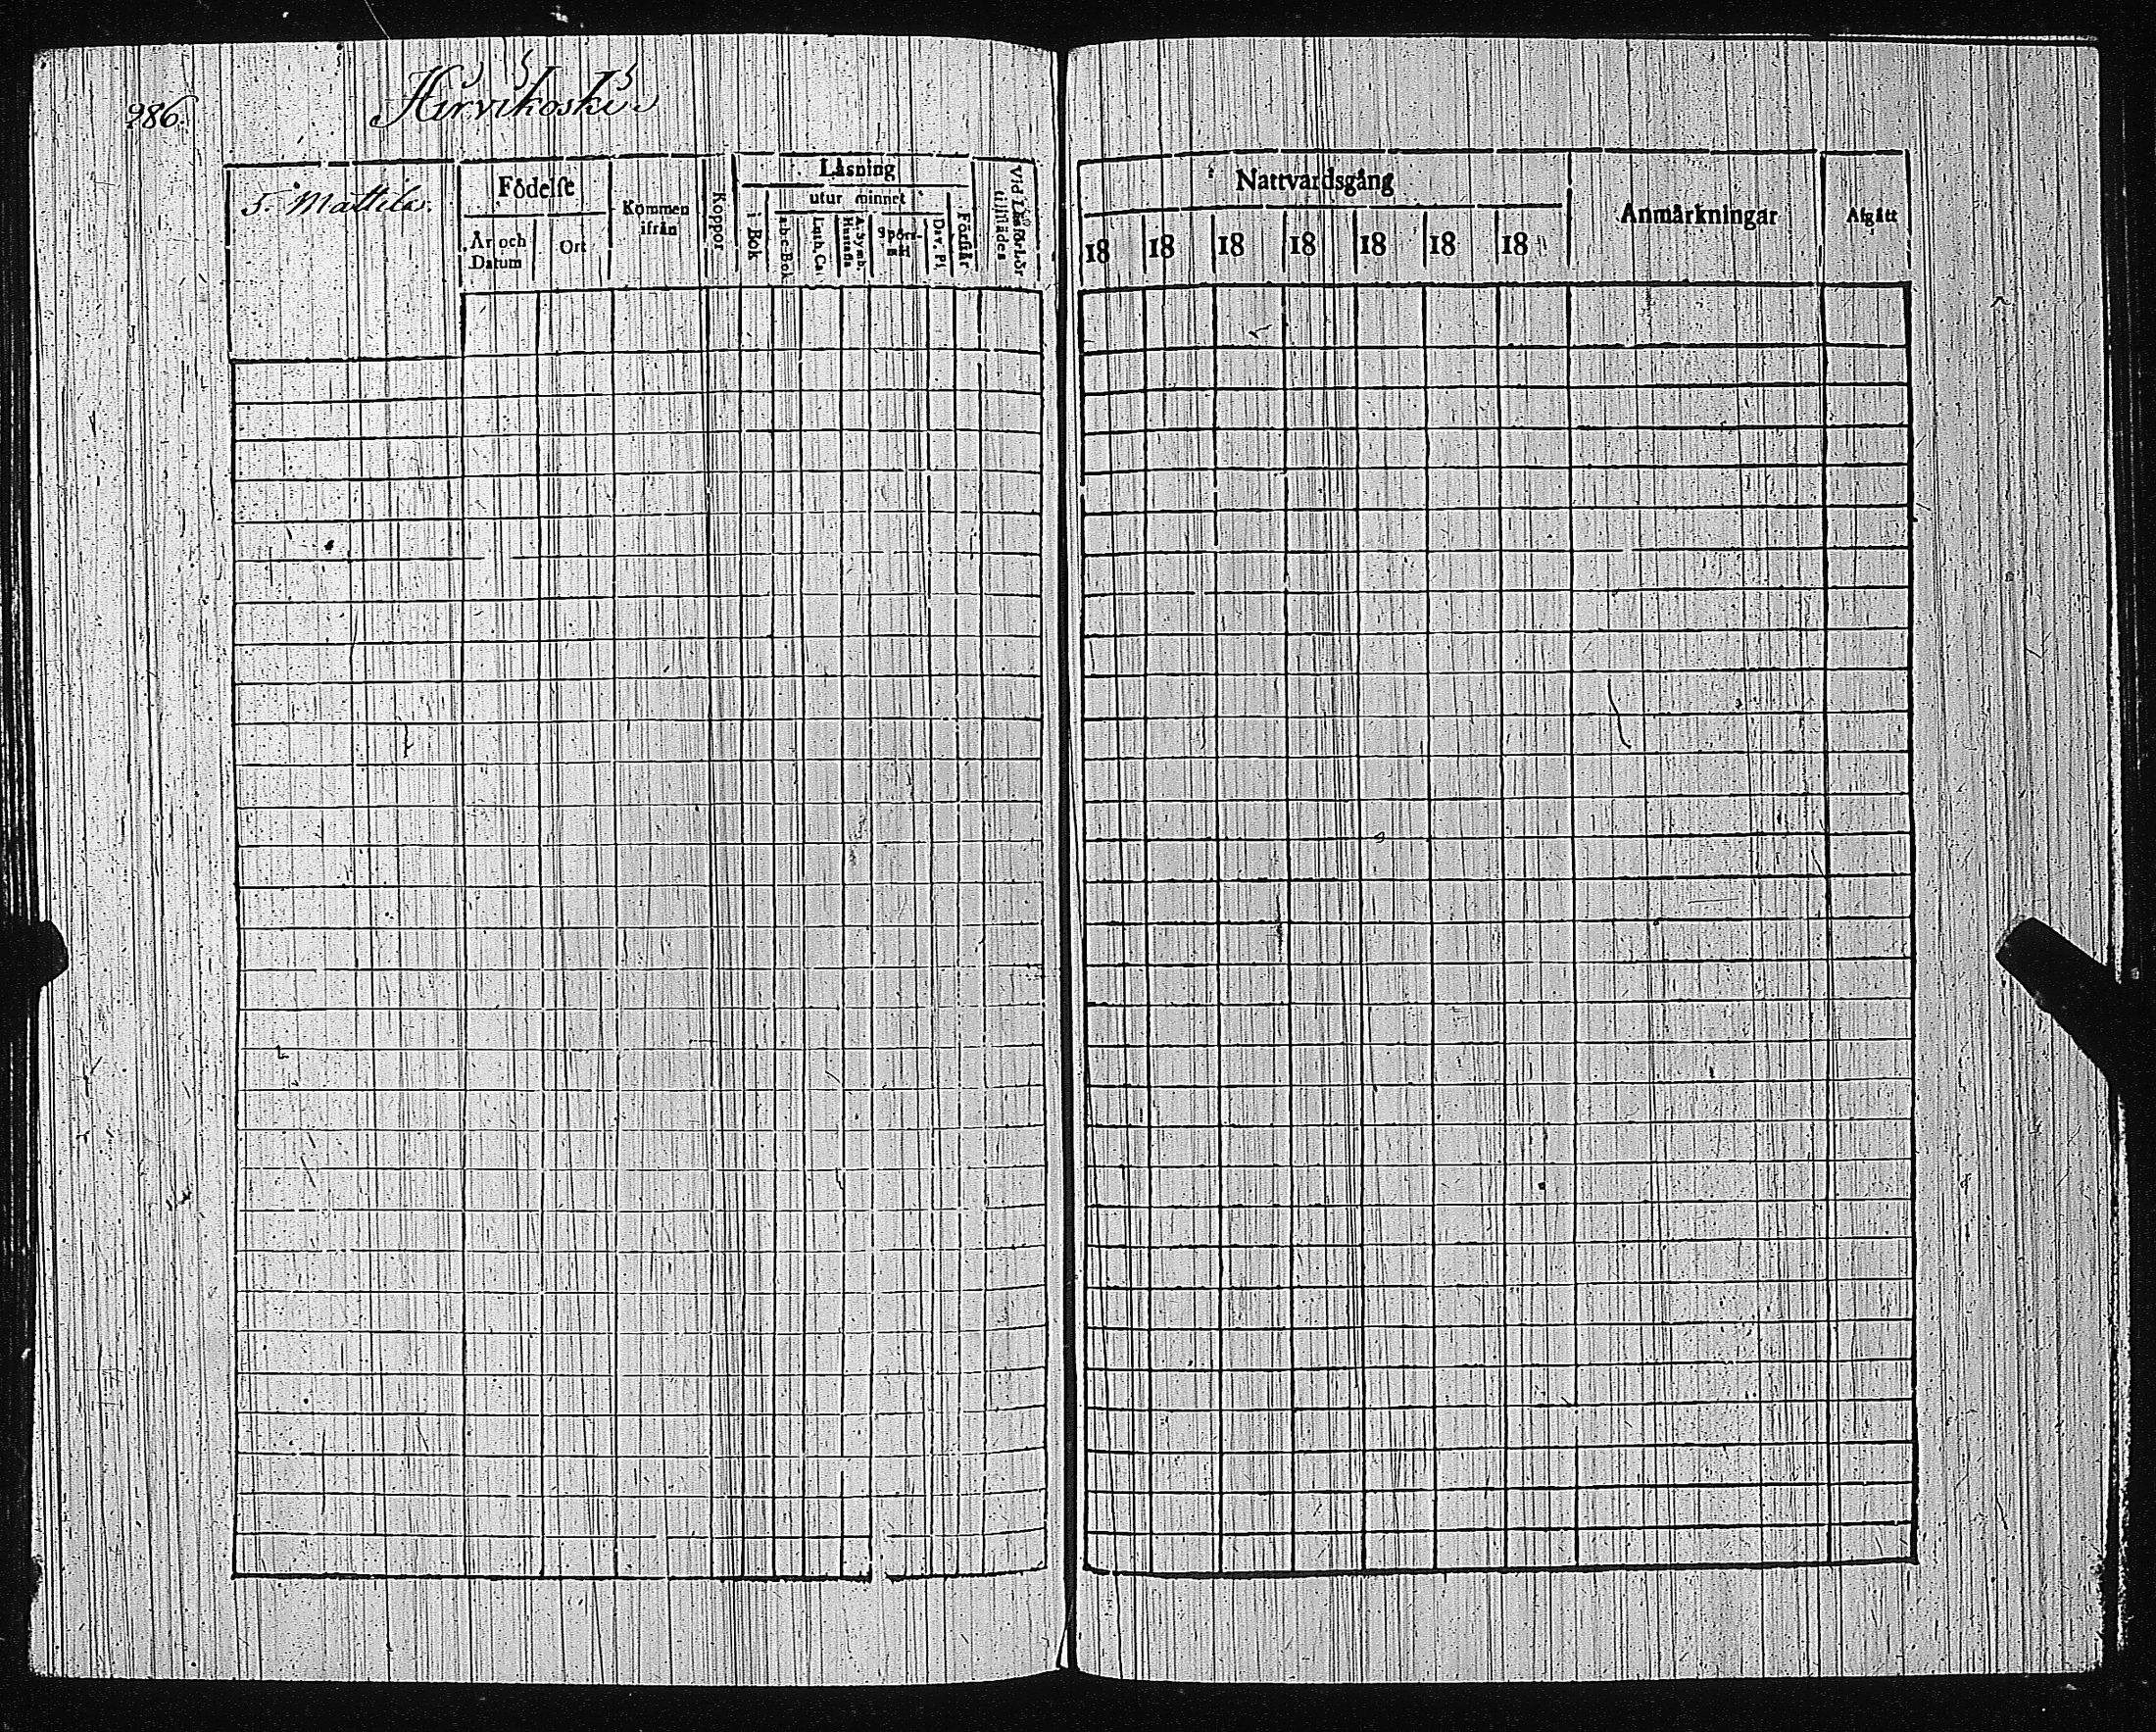 286.
Hirvikoski
5. Mattila.
Födelse
År och
Datum
Ort
Kommen
ifrån
Koppor
Läsning
i Bok
utur minnet
a-b-c-Bok
Luth. Ca.
A. Symb.
Hustafla
Spörs-
mål
Dav. Ps.
Förstår
Vid Läsförhör
tillstädes
Nattvardsgång
18 18 18 18 18 18 18
Anmärkningar
Afgått